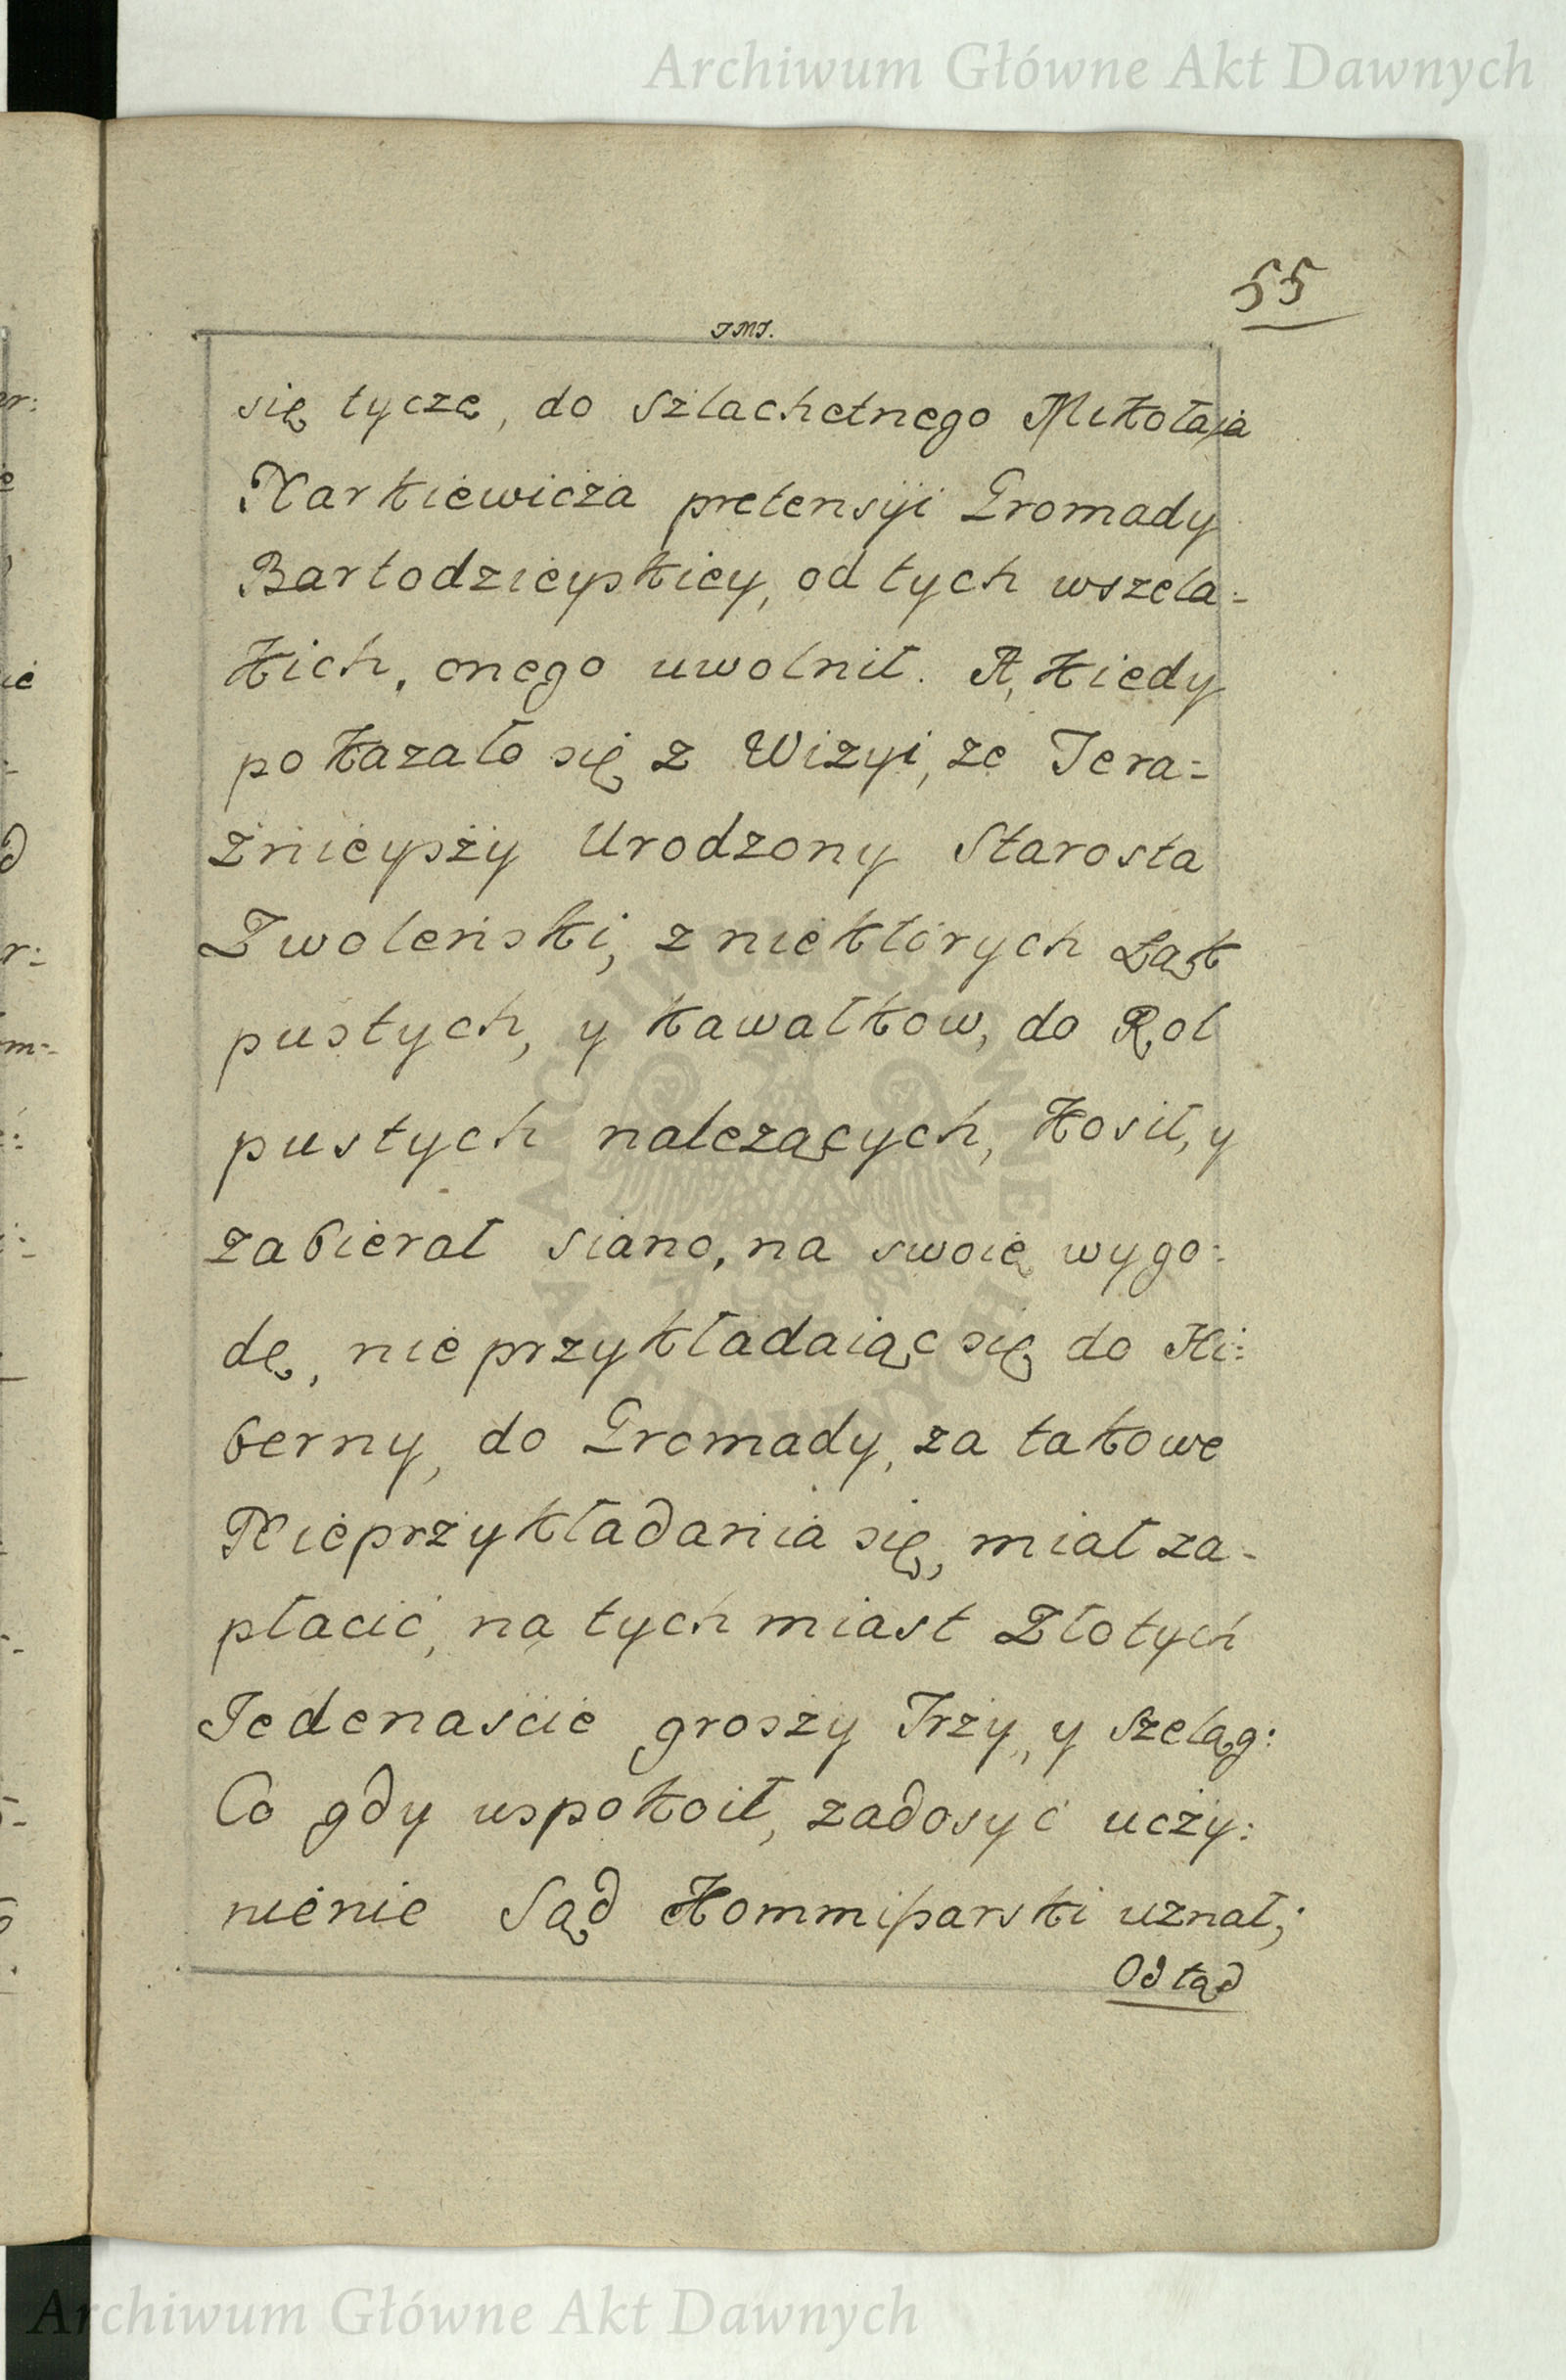 Archiwum Główne Akt Dawnych
55
JMJ.
się tycze, do szlachetnego Mikołaja
Narkiewicza pretensyi Gromady
Bartodzieyskiey, od tych wszela-
kich, onego uwolnił. A, kiedy
pokazało się z Wizyi, że Tera-
żnieyszy Urodzony Starosta
Zwoleński, z niektórych Łąk
pustych, y kawałkow, do Rol
pustych należących, kosił, y
zabierał siano, na swoię wygo-
dę, nie przykładaiąc się do Hi:
berny, do Gromady, za takowe
Nieprzykładania się, miał za-
płacić, na tych miast Złotych
Jedenaście groszy Trzy, y szeląg:
Co gdy uspokoił, zadosyć uczy:
nienie Sąd Kommissarski uznał;
Odtąd
Archiwum Główne Akt Dawnych